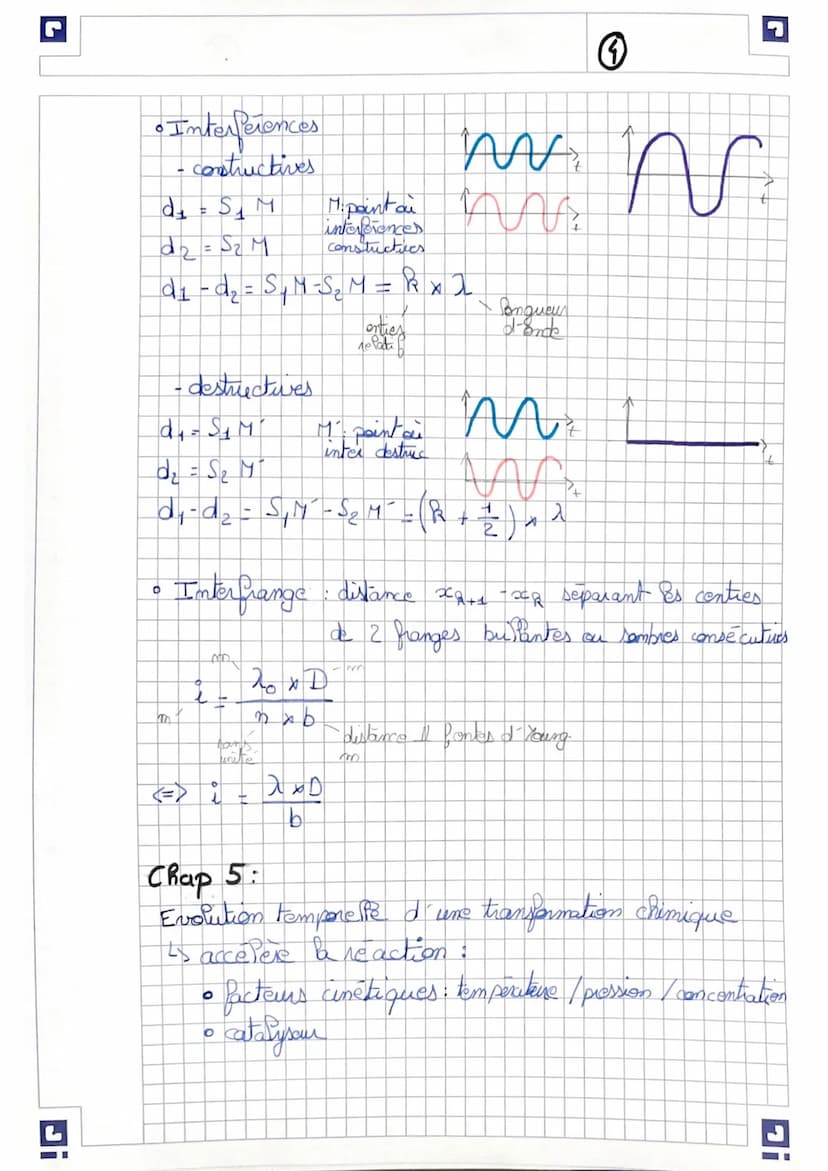 ④
• Interférences
- constructives
d₁ = S₁ M M: point où
interférences
d₂ = S₂ M constructives
d₁ - d₂ = S₁M - S₂ M = k × λ
entier longueur
relatif d'onde
t
t
t
- destructives
d₁ = S₁ M' M': point où
inter destruc
d₂ = S₂ M'
d₁ - d₂ = S₁M' - S₂ M' = (k + 1/2) × λ
t
t
t
• Interfrange : distance xₖ₊₁ - xₖ séparant les centres
de 2 franges brillantes ou sombres consécutives
m m
i = λ₀ × D / n × b
m
sans distance // fentes d'Young
unité m
<=> i = λ × D / b
Chap 5 :
Evolution temporelle d'une transformation chimique
↳ accélère la réaction :
• facteurs cinétiques : température / pression / concentration
• catalyseur